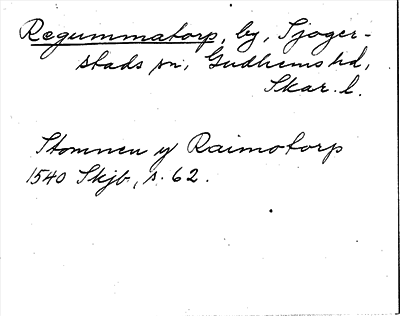 Regummatorp, by, Tjoger-
stads sn, Gudhems hd,
Skar. l.
Stommen y Raimotorp
1540 Skjb, s. 62.